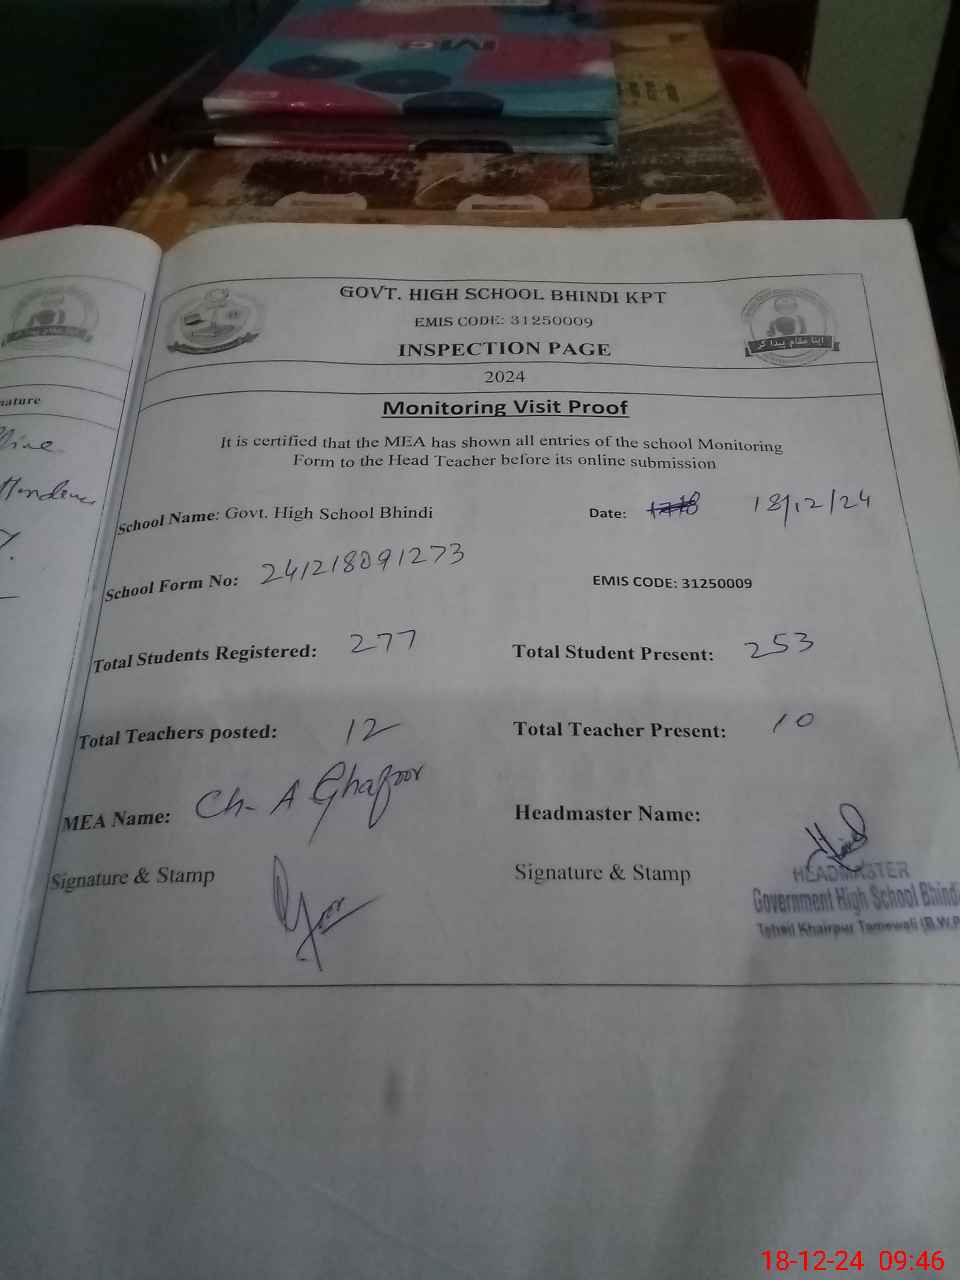 GOVT. HIGH SCHOOL BHINDI KPT
EMIS CODE: 31250009
INSPECTION PAGE
اپنا مقام پیدا کر
2024
Monitoring Visit Proof
It is certified that the MEA has shown all entries of the school Monitoring
Form to the Head Teacher before its online submission
School Name: Govt. High School Bhindi Date: 18/12/24
School Form No: 241218091273 EMIS CODE: 31250009
Total Students Registered: 277 Total Student Present: 253
Total Teachers posted: 12 Total Teacher Present: 10
MEA Name: Ch- A Ghafoor Headmaster Name:
Signature & Stamp Signature & Stamp
HEADMASTER
Government High School Bhindi
Tehsil Khairpur Tamewali (B.W.P
18-12-24 09:46